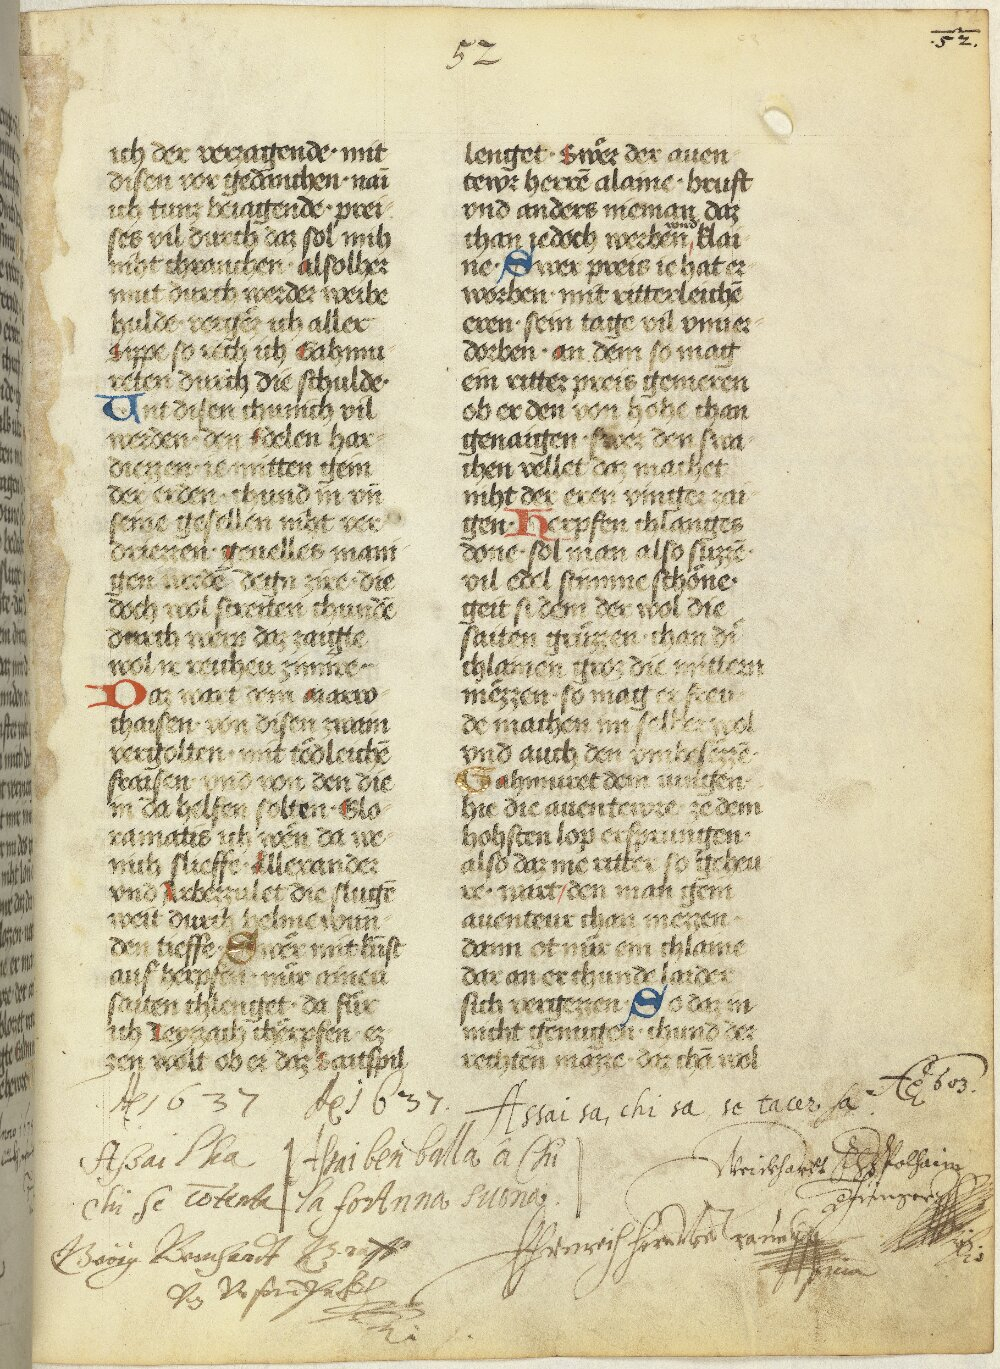 52
.52.
ich der verzagende · mit
disen vor gedanchen · nai
ich tunz beiagende · prei
ses vil durch daz sol mih
niht chranchen · alsolher
mut durch werder weibe
hulde verger ich aller
sippe so rech ich Gahmu
reten durch die schulde ·
Unt disen chunich vil
werden · den Edelen har
diezzen · ie mitten gein
der erden · chund in vn̄
seine gesellen niht ver
driezzen · geuelles mani
gen werdē degn zire · die
doch wol streiten chundē
durch wem daz zaigte
wol ir reicheu zimire ·
Daz wart dem marro
chaisen · von disen zwain
vergolten · mit tődleichē
fraisen · vnd von den die
in da helfen solten · Glo
ramatis ich wen da ie
mih slieffe · Allexander
vnd Arbezzulet die slugē
weit durch helme wun
den tieffe · Swer mit kůst
auf herpfen · nůr aineu
saiten chlenget · da fůr
ich Leyrach cherpfen · ez
zen wolt ob er daz saitspil
lenget · Swer der auen
tewr herrē alaine · bruft
vnd anders nieman daz
chan iedoch werben vnd klai
ne · Swer preis ie hat er
worben · mit ritterleichē
eren · sein tage vil vnuer
dorben · an dem so mag
ein ritter preis gemeren
ob er den von hohe chan
genaigen · swer den swa
chen vellet daz machet
niht der eren vinger zai
gen · Herpfen chlanges
done · sol man also sůzzē ·
vil edel stimme schőne ·
geit si dem der wol die
saiten grůzzen · chan di
chlainen groz die mittern
mezzen · so mag er freu
de machen im selber wol
vnd auch den vmbesezzē ·
Gahmuret dem iungen ·
hie die auentewre · ze dem
hohsten lop ersprungen ·
also daz nie ritter so geheu
re · wart / den man gein
auenteur chan mezzen ·
dann ot nůr ein chlaine
dar an er chunde laider
sich vergezzen · So daz in
nicht genugen · chund der
rechten mazze · daz chā wol
1637 1637.
Assai sa, chi sa se tacer sa
1603.
Assai sha
chi se
Assai ben balla a chi
la fortunna suona.